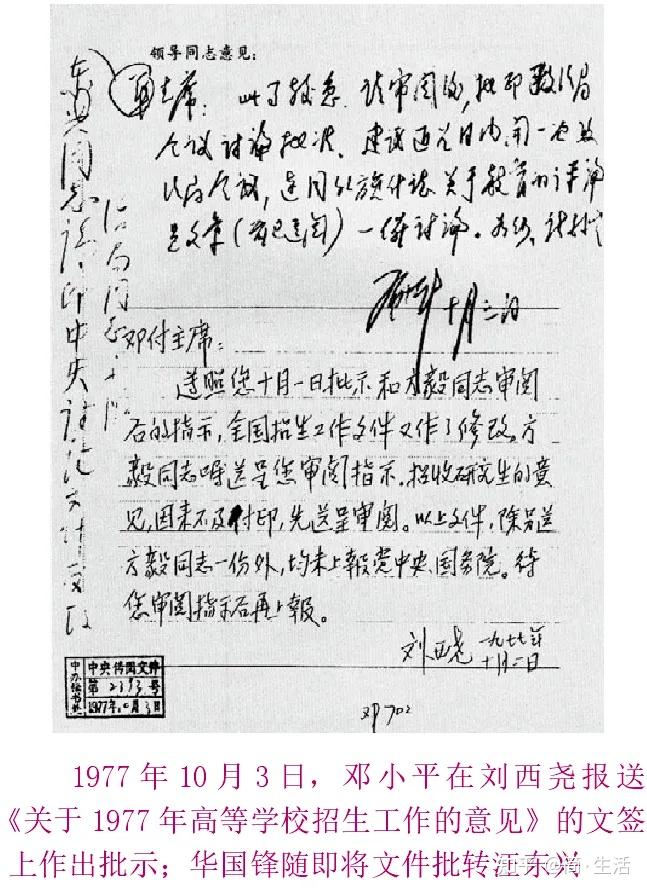 领导同志意见:
华主席:此事较急,请审阅后,批印政治局
会议讨论批准。建议近几日内开一次政
治局会议,连同红旗什誌关于教育的评论
员文章(前已送阅)一併讨论。
邓小平 十月三日
邓付主席:
遵照您十月一日批示和方毅同志审阅
后的指示,全国招生工作文件又作了修改。方
毅同志嘱送呈您审阅指示。招收研究生的意
见,因来不及付印,先送呈审阅。以上文件,除另送
方毅同志一份外,均未上报党中央、国务院。待
您审阅指示后再上报。
刘西尧 一九七七年
十月二日
东兴同志:请印中央
中办秘书处
中央传阅文件
第2393号
1977年10月3日
邓702
1977 年 10 月 3 日,邓小平在刘西尧报送
《关于 1977 年高等学校招生工作的意见》的文签
上作出批示;华国锋随即将文件批转汪东兴
知乎 @商·生活